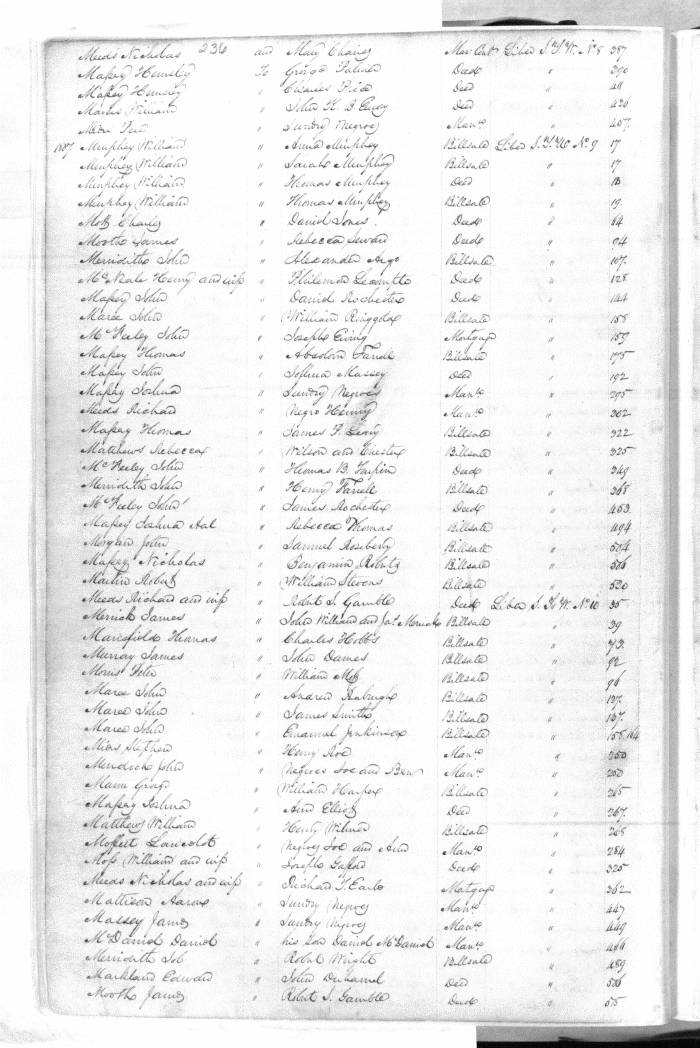 236
Meeds Nicholas and Mary Chaney Mar. Cont Liber S.T.W. No 8 387
Massey Hemsley To George Palmer Deed " 390
Massey Hemsley " Charles Price Deed " 411
Morris William " John H. B. Deed " 420
" Sundry Negroes Mano " 457
1807 Murphey William " Anna Murphey Billsale Liber S.T.W No. 9 17
Murphey William " Sarah Murphey Billsale " 17
Murphey William " Thomas Murphey Deed " 18
Murphey William " Thomas Murphey Billsale " 19
Charles " Daniel Jones. Deed " 64
Mooth James " Rebecca Deed " 94
Merridith John " Alexander Billsale " 107
McNeale Henry and wife " Philemon Deed " 128
Massey John " Daniel Rochester Deed " 144
Maree John " William Ringgold Billsale " 158
McFeeley John " Joseph Ewing Mortgage " 159
Massey Thomas " Absolom Farrell Billsale " 175
Massey John " Joshua Massey Deed " 192
Massey Joshua " Sundry Negroes Mano " 295
Meeds Richard " Negro Henny Mano " 302
Massey Thomas " James F. Billsale " 322
Matthews Rebecca " Wilson and Chester Billsale " 325
McFeeley John " Thomas B. Turpin Deed " 349
Merridith John " Henry Farrell Billsale " 368
McFeeley John " James Rochester Deed " 453
Massey Joshua &al " Rebecca Thomas Billsale " 494
Morgan John " Samuel Roseberry Billsale " 554
Massey Nicholas " Benjamin Roberts Billsale " 556
Martin Robert " William Stevens Billsale " 580
Meeds Richard and wife " Robert S. Gamble Deed Liber S.T.W. No. 10 35
Merrick James " John William and Jas. Merrick Billsale " 39
Mansfield Thomas " Charles Hobbs Billsale " 73
Murray James " John Dames Billsale " 92
Morris Peter " William Billsale " 96
Maree John " Andrew Billsale " 137
Maree John " James Smith Billsale " 137
Maree John " Emanuel Jenkinson Billsale " 158 164
Stephen " Henry Mano " 250
John " Negroes Joe and Ben Mano " 250
Mann Gray " William Harper Billsale " 265
Massey Joshua " Ann Elliott Deed " 267
Matthews William " Henry Wilmer Billsale " 268
Moffett Lancelot " Negroes Joe and Ann Mano " 284
Moss William and wife " Joseph Deed " 325
Meeds Nicholas and wife " Richard T. Earle Mortgage " 362
Mattison Aaron " Sundry Negroes Mano " 447
Massey James " Sundry Negroes Mano " 449
McDaniel Daniel " his son Daniel McDaniel Mano " 464
Merridith Job " Robert Wright Billsale " 489
Markland Edward " John Duhamel Deed " 506
Mooth James " Robert S. Gamble Deed " 515